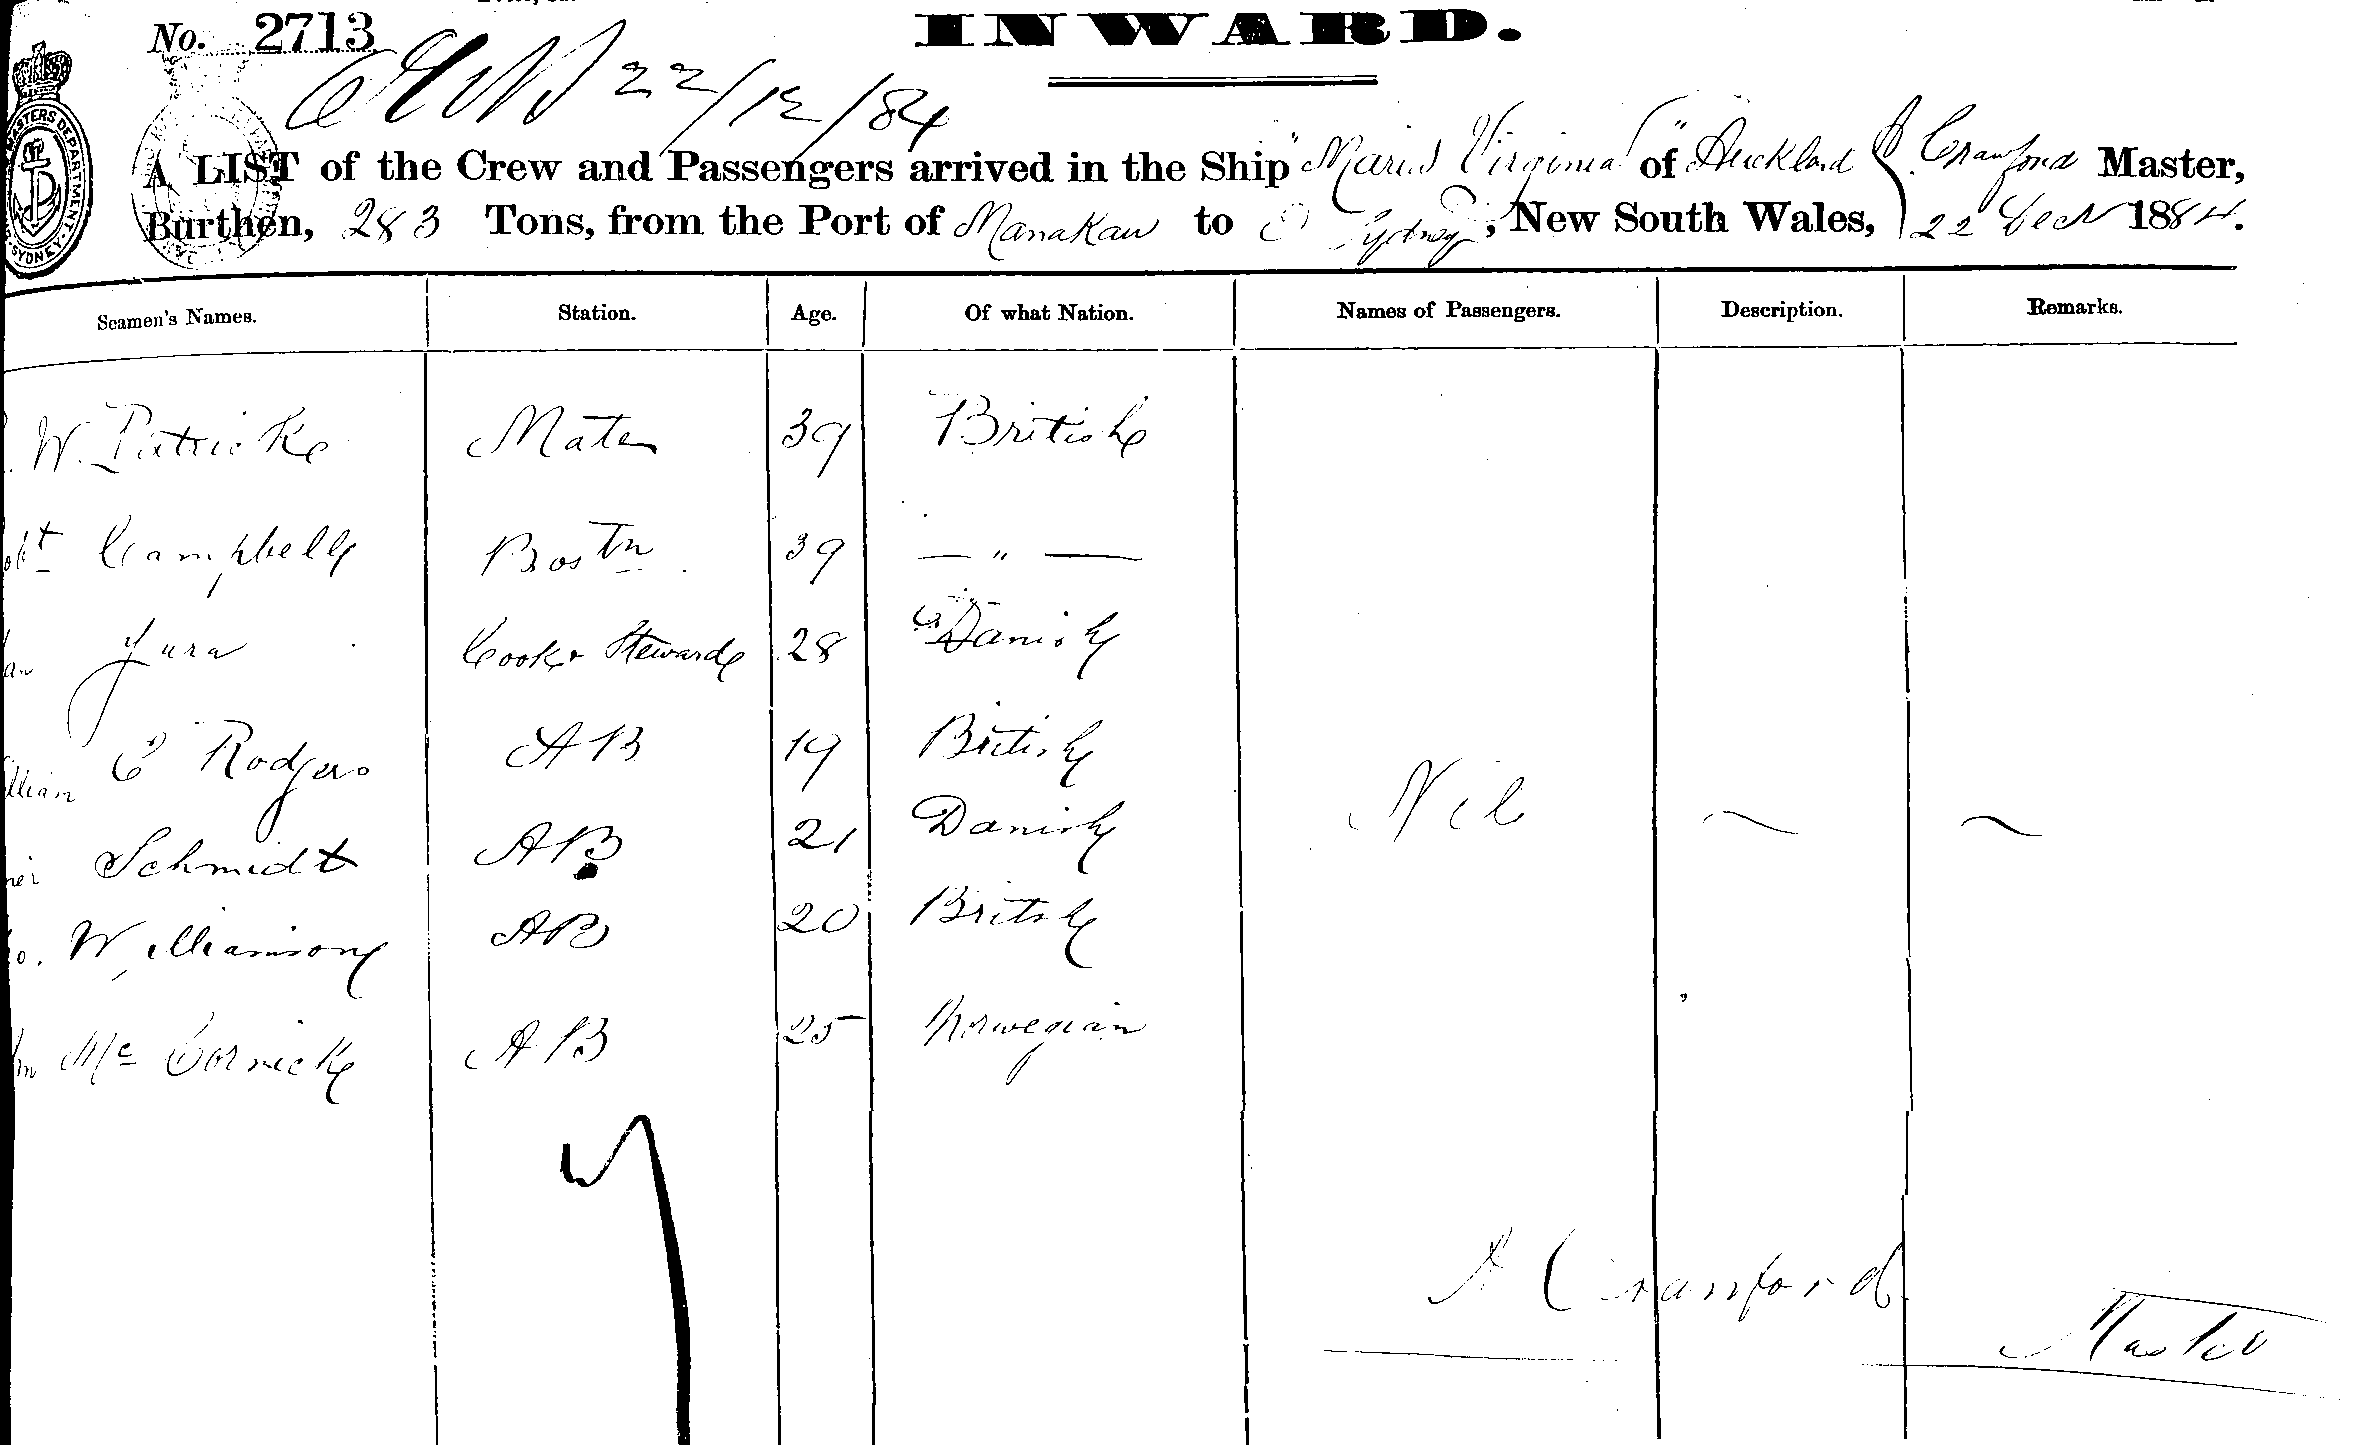 No. 2713
INWARD.
22/12/84
MASTERS DEPARTMENT SYDNEY
A LIST of the Crew and Passengers arrived in the Ship "Maria Virginia" of Auckland Crawford Master,
Burthen, 283 Tons, from the Port of Manakau to Sydney, New South Wales, 22 Decr 1884.
Seamen's Names. Station. Age. Of what Nation. Names of Passengers. Description. Remarks.
W. Patrick Mate 39 British
Campbell Bostn 39 — " —
Jura Cook & Steward 28 Danish
E Rodgers AB 19 British
Nil
Schmidt AB 21 Danish
Williamson AB 20 British
Mc Cormick AB 25 Norwegian
A Crawford
Master